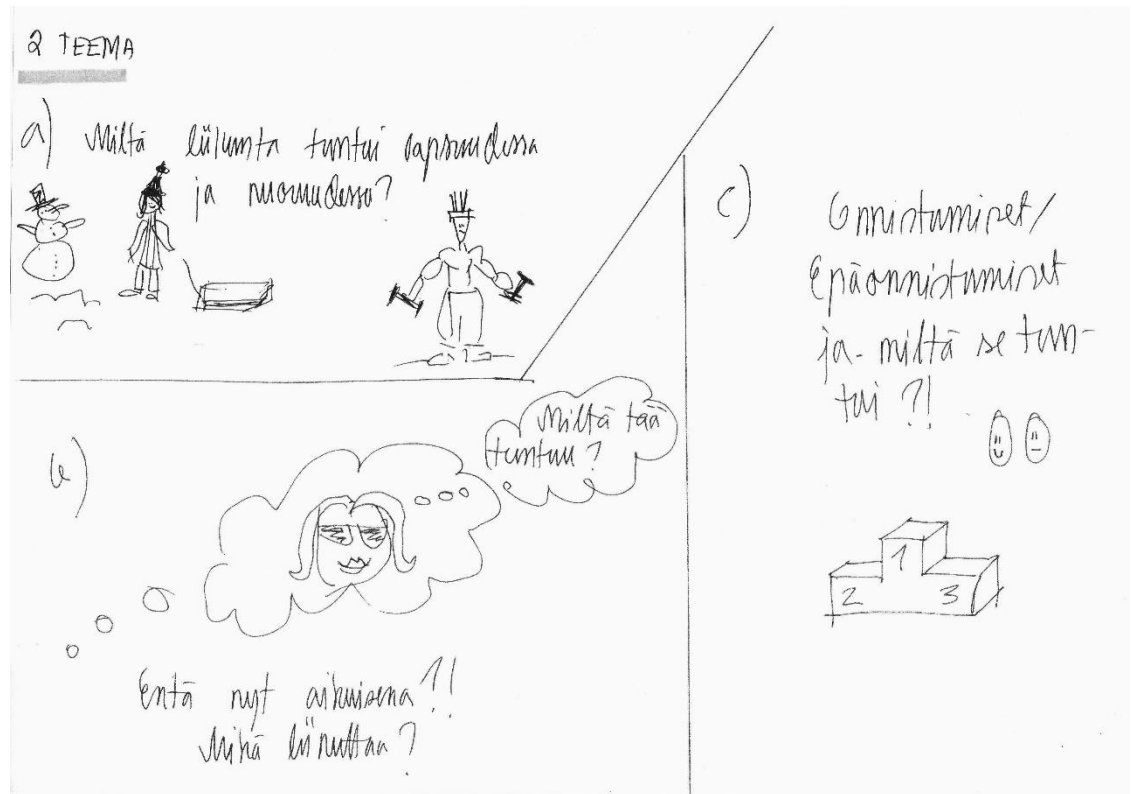 2 TEEMA
a) Miltä liikunta tuntui lapsuudessa
ja nuoruudessa?
b)
Miltä tää
tuntuu?
Entä nyt aikuisena?!
Mikä liikuttaa?
c) Onnistumiset/
Epäonnistumiset
ja miltä se tun-
tui?!
1
2 3